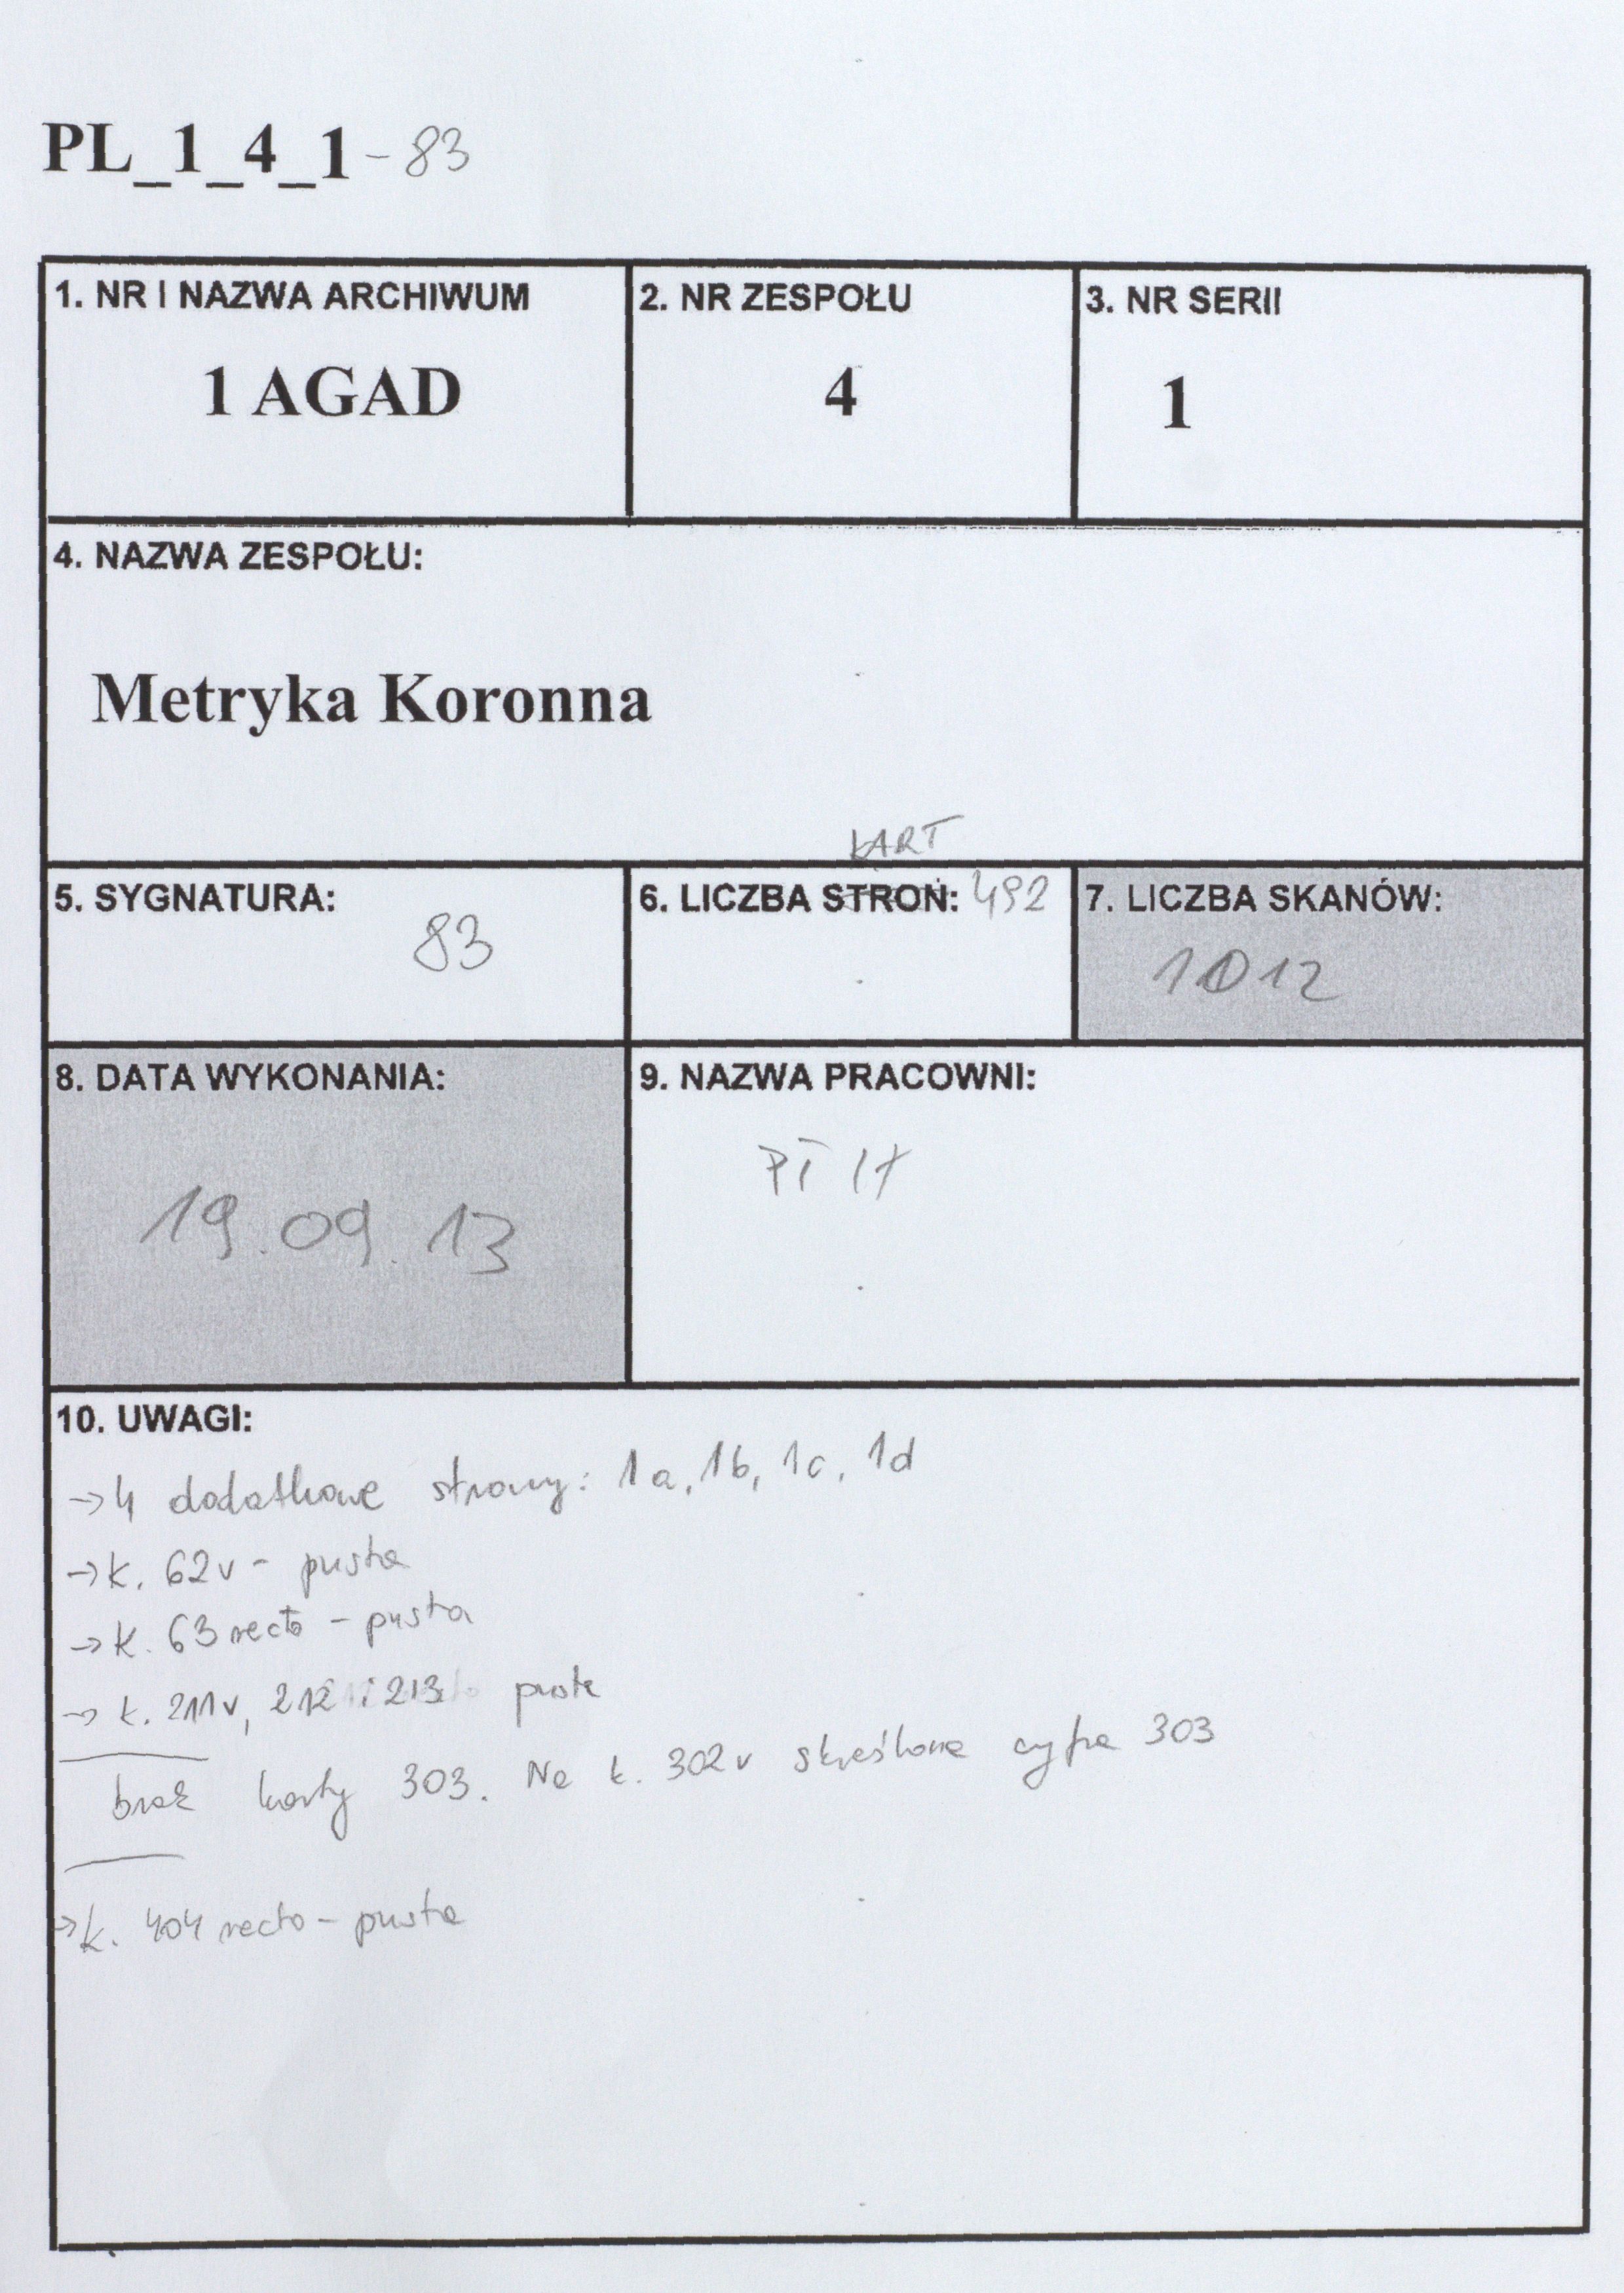 PL_1_4_1 - 83
1. NR I NAZWA ARCHIWUM
1 AGAD
2. NR ZESPOŁU
4
3. NR SERII
1
4. NAZWA ZESPOŁU:
Metryka Koronna
KART
5. SYGNATURA:
83
6. LICZBA STRON: 492
7. LICZBA SKANÓW:
1012
8. DATA WYKONANIA:
19.09.13
9. NAZWA PRACOWNI:
10. UWAGI:
→ 4 dodatkowe strony: 1a, 1b, 1c, 1d
→ k. 62v - pusta
→ k. 63 recto - pusta
→ k. 211v, 212 i 213 puste
brak karty 303. Na k. 302v skreślona cyfra 303
→ k. 404 recto - pusta